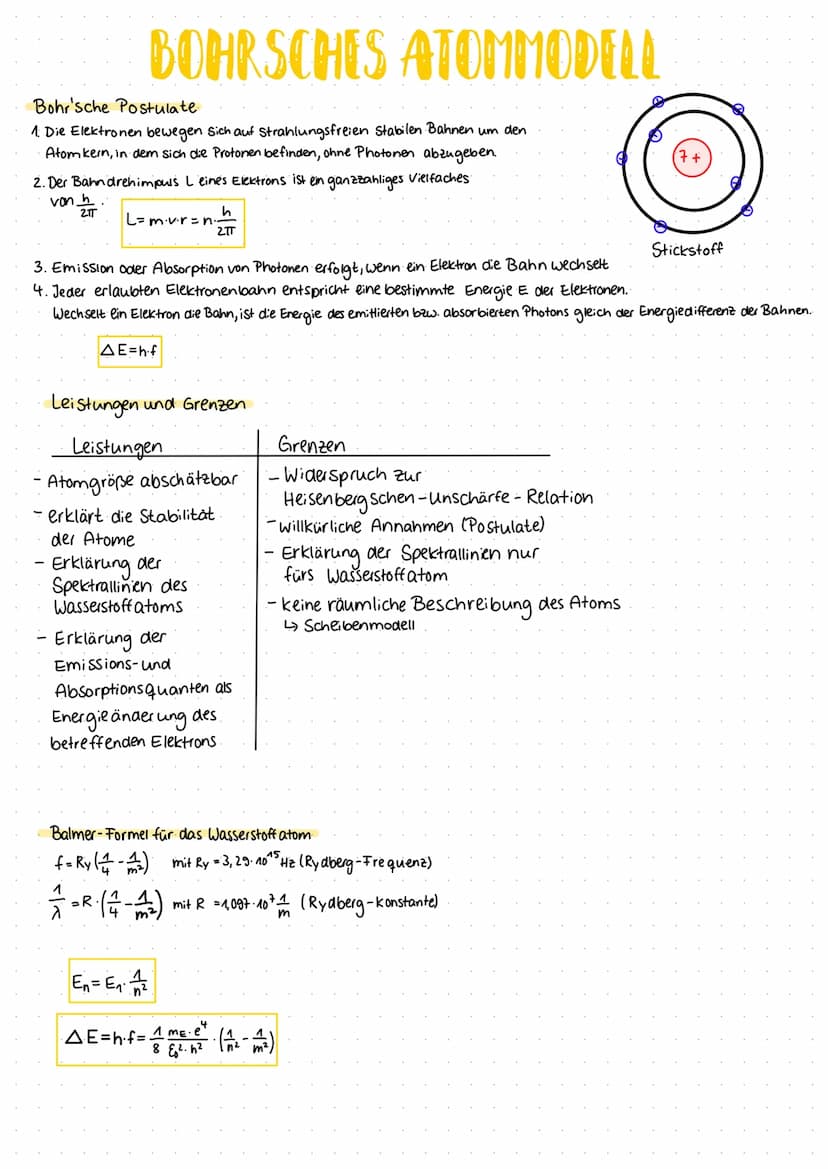 BOHRSCHES ATOMMODELL
Bohr'sche Postulate
1. Die Elektronen bewegen sich auf strahlungsfreien stabilen Bahnen um den
Atomkern, in dem sich die Protonen befinden, ohne Photonen abzugeben.
2. Der Bahndrehimpuls L eines Elektrons ist ein ganzzahliges Vielfaches
von h/2π.
L = m·v·r = n·h/2π
7+
Stickstoff
3. Emission oder Absorption von Photonen erfolgt, wenn ein Elektron die Bahn wechselt
4. Jeder erlaubten Elektronenbahn entspricht eine bestimmte Energie E der Elektronen.
Wechselt ein Elektron die Bahn, ist die Energie des emittierten bzw. absorbierten Photons gleich der Energiedifferenz der Bahnen.
ΔE=h·f
Leistungen und Grenzen
Leistungen
- Atomgröße abschätzbar
- erklärt die Stabilität
der Atome
- Erklärung der
Spektrallinien des
Wasserstoffatoms
- Erklärung der
Emissions- und
Absorptionsquanten als
Energieänderung des
betreffenden Elektrons
Grenzen
- Widerspruch zur
Heisenbergschen-Unschärfe-Relation
- willkürliche Annahmen (Postulate)
- Erklärung der Spektrallinien nur
fürs Wasserstoffatom
- keine räumliche Beschreibung des Atoms
↳ Scheibenmodell
Balmer-Formel für das Wasserstoffatom
f = Ry(1/4 - 1/m²) mit Ry = 3,29·10¹⁵ Hz (Rydberg-Frequenz)
1/λ = R·(1/4 - 1/m²) mit R = 1,097·10⁷ 1/m (Rydberg-Konstante)
Eₙ = E₁·1/n²
ΔE=h·f = 1/8 mE·e⁴/ε₀²·h² · (1/n² - 1/m²)